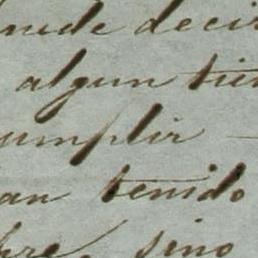 puede decir
algun tiem
cumplir
an tenido
bre, sino